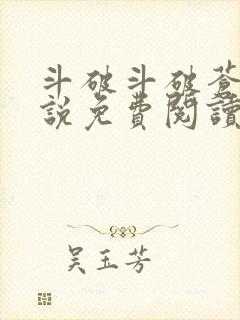 斗破斗破蒼
說免費閱讀
吳玉芳